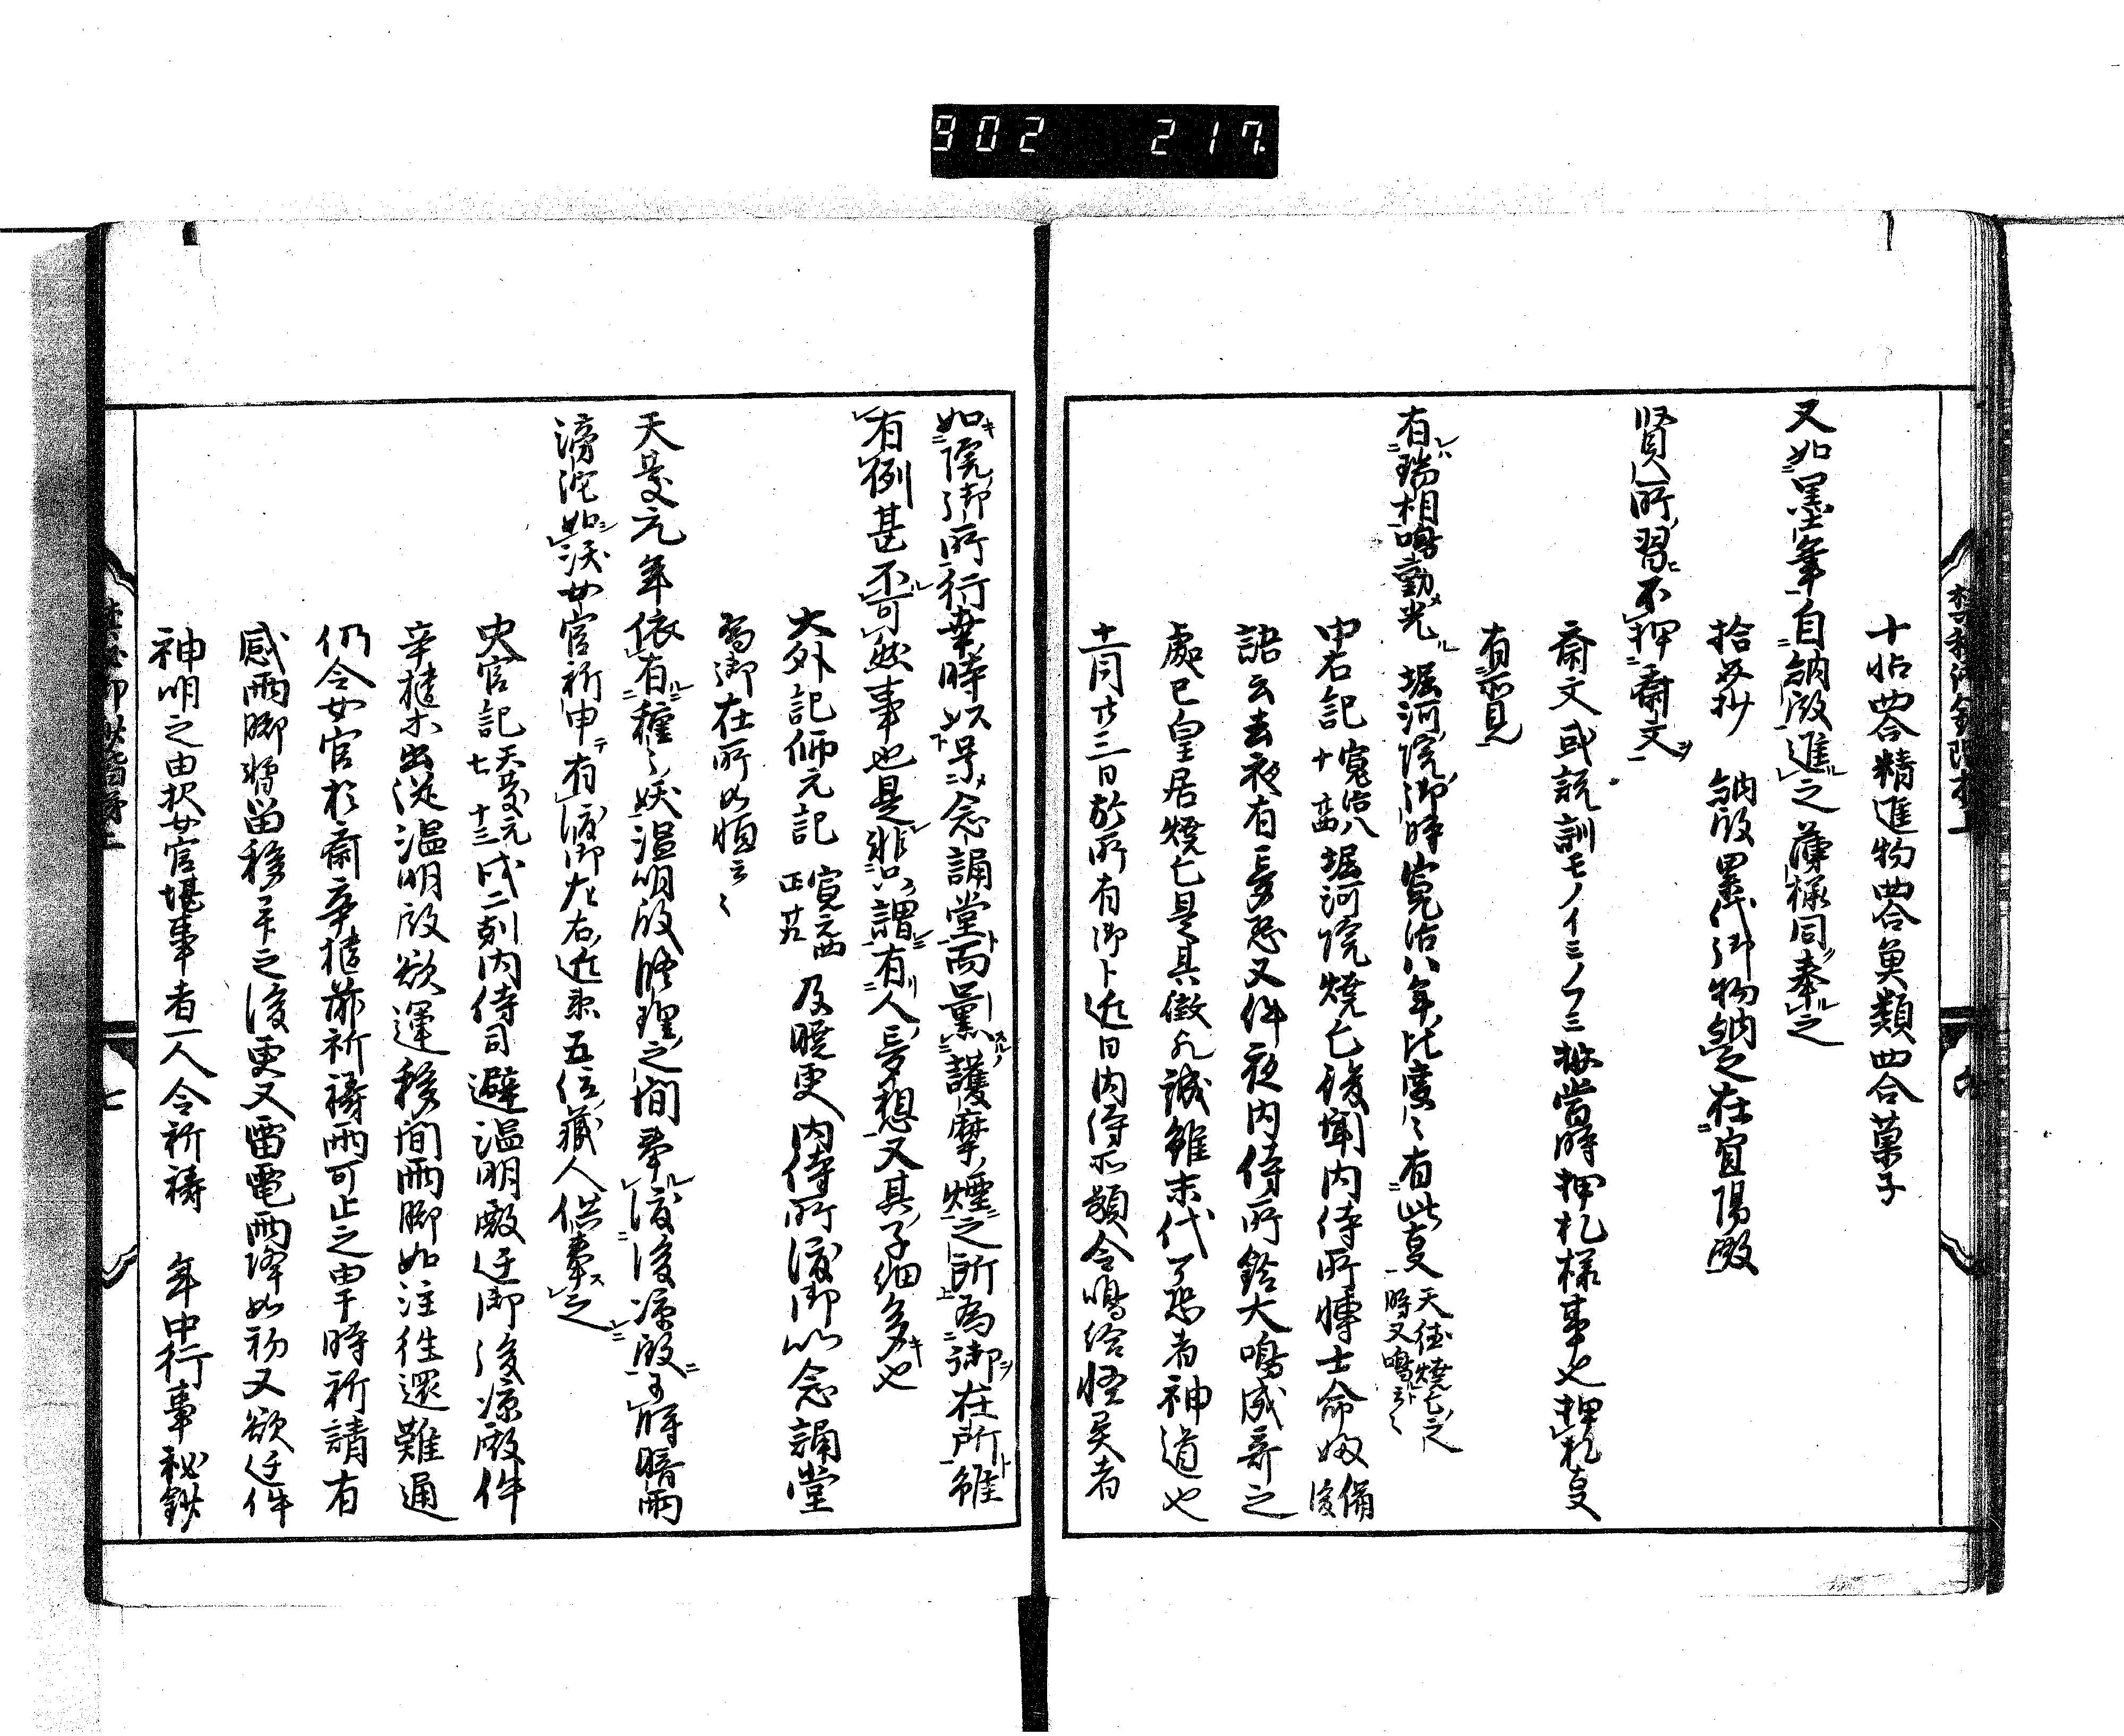 902 217.
十帖 四合精進物四合魚類四合菓子
又如墨筆自納殿進之薄様同奉之
拾芥抄 納殿累代御物納之在宜陽殿
賢所習不押斎文
斎文或説訓モノイミノフミ 当時押札様事也押札事
有所見
有瑞相鳴動光堀河院御時寛治八年比度〻有此事 天徳焼亡之時又鳴云〻
中右記 寛治八十 堀河院焼亡後聞内侍所博士命婦備後
語云去夜有夢忽又件夜内侍所鈴大鳴成奇之
處已皇居焼亡是其徴凡誠雖末代可恐者神道也
十一月廿三日於所有御卜近日内侍所頻令鳴給怪異者
如院御所行幸時以号念誦堂而薫護摩煙之所為御在所雖
有例甚不可然事也是非只謂有人夢想又其子細多也
大外記師元記 及暁更内侍所渡御以念誦堂
為御在所如恒云〻
天慶元年依有種〻妖温明殿修理之間奉渡後凉殿于時暗雨
滂沱如沃女官祈申有渡御左右近衆五位蔵人供奉之
史官記 天慶元七十三 戌二刻内侍司避温明殿遷御後凉殿件
辛樻等出従温明殿欲運移間雨脚如注往還難通
仍令女官於斎辛樻前祈禱雨可止之由于時祈請有
感雨脚暫留移下之後更又雷電雨降如初又欲遷件
神明之由択女官堪事者一人令祈禱 年中行事秘鈔
七